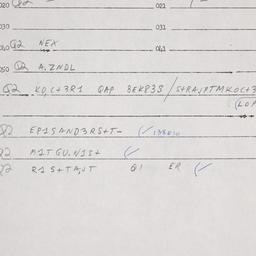 020 Q2 021
030 031
040 Q2 NEX 041
050 Q2 A.ZNDL
Q2 KO,C+3R1 GAP 3EKP3S / S+RA,PTMKOC+3
(LOP
Q2 EP1SAND3RS+T- (✓
Q2 M1T GU.N1S+ (✓
Q2 R1S+TA,T Q1 ER (✓